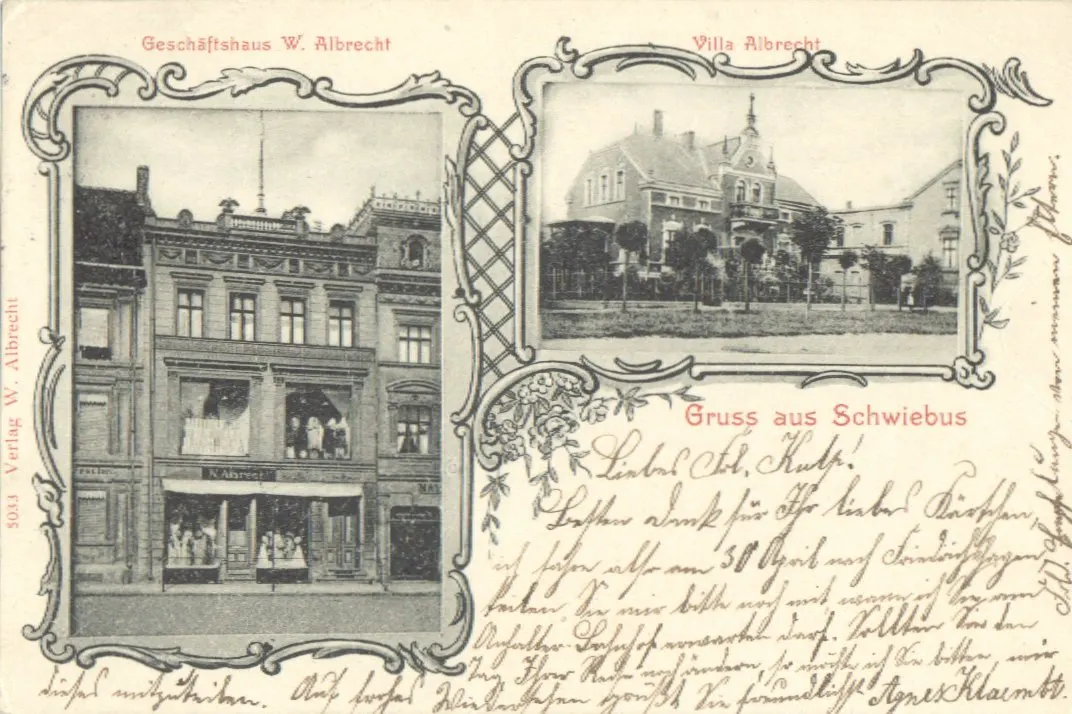 Geschäftshaus W. Albrecht
Villa Albrecht
5033 Verlag W. Albrecht
W. Albrecht
Gruss aus Schwiebus
Liebes Frl. Kulp!
Besten Dank für Ihr liebes Kärtchen,
ich fahre also am 30 April nach Friedrichshagen
teilen Sie mir bitte noch mit wann ich Sie am
Anhalter-Bahnhof erwarten darf. Sollten Sie den
Tag Ihrer Reise noch ändern, so möchte ich Sie bitten, mir
dieses mitzuteilen. Auf frohes Wiedersehen grüßt Sie freundlichst Agnes Klaembt.
von meinen Eltern.